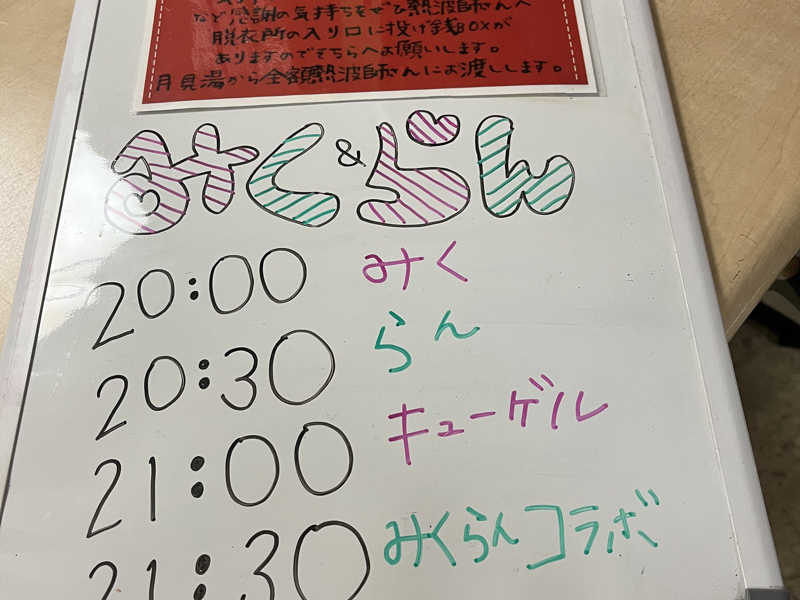 など感謝の気持ちをぜひ熱波師さんへ
脱衣所の入り口に投げ銭BOXが
ありますのでそちらへお願いします。
月見湯から全額熱波師さんにお渡しします。
みく&らん
20:00 みく
20:30 らん
21:00 キューゲル
21:30 みくらんコラボ